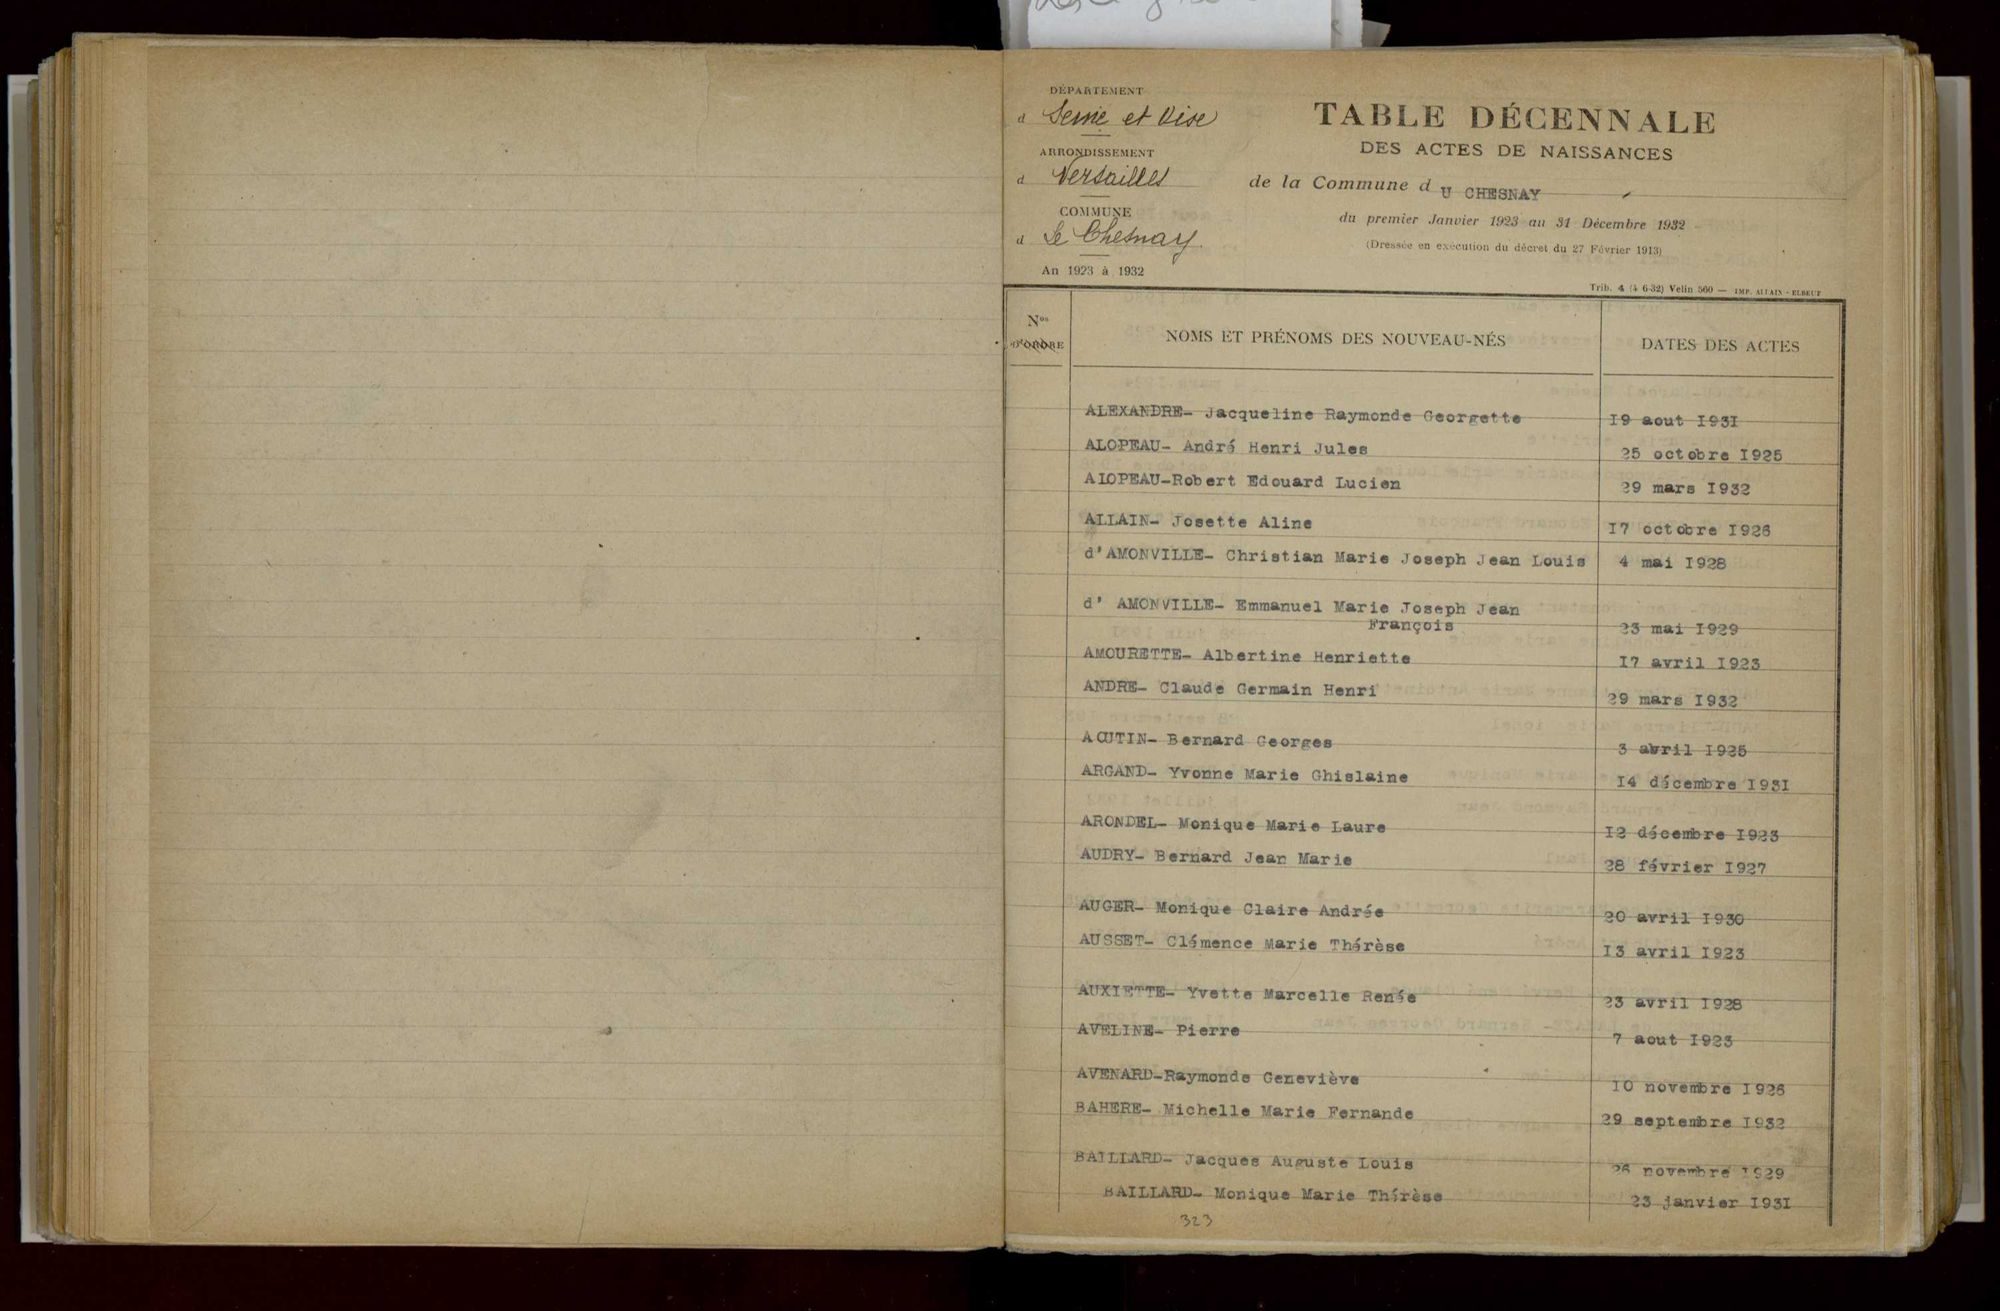 DÉPARTEMENT
d Seine et Oise
ARRONDISSEMENT
d Versailles
COMMUNE
d Le Chesnay
An 1923 à 1932
TABLE DÉCENNALE
DES ACTES DE NAISSANCES
de la Commune d U CHESNAY
du premier Janvier 1923 au 31 Décembre 1932
(Dressée en exécution du décret du 27 Février 1913)
Trib. 4 (4 6-32) Velin 560 — IMP. ALLAIN - ELBEUF
Nos D'ORDRE
NOMS ET PRÉNOMS DES NOUVEAU-NÉS
DATES DES ACTES
ALEXANDRE- Jacqueline Raymonde Georgette 19 aout 1931
ALOPEAU- André Henri Jules 25 octobre 1925
ALOPEAU-Robert Edouard Lucien 29 mars 1932
ALLAIN- Josette Aline 17 octobre 1926
d'AMONVILLE- Christian Marie Joseph Jean Louis 4 mai 1928
d' AMONVILLE- Emmanuel Marie Joseph Jean
François 23 mai 1929
AMOURETTE- Albertine Henriette 17 avril 1923
ANDRE- Claude Germain Henri 29 mars 1932
AOUTIN- Bernard Georges 3 avril 1925
ARGAND- Yvonne Marie Ghislaine 14 décembre 1931
ARONDEL- Monique Marie Laure 12 décembre 1923
AUDRY- Bernard Jean Marie 28 février 1927
AUGER- Monique Claire Andrée 20 avril 1930
AUSSET- Clémence Marie Thérèse 13 avril 1923
AUXIETTE- Yvette Marcelle Renée 23 avril 1928
AVELINE- Pierre 7 aout 1923
AVENARD-Raymonde Geneviève 10 novembre 1926
BAHERE- Michelle Marie Fernande 29 septembre 1932
BAILLARD- Jacques Auguste Louis 26 novembre 1929
BAILLARD- Monique Marie Thérèse 23 janvier 1931
323